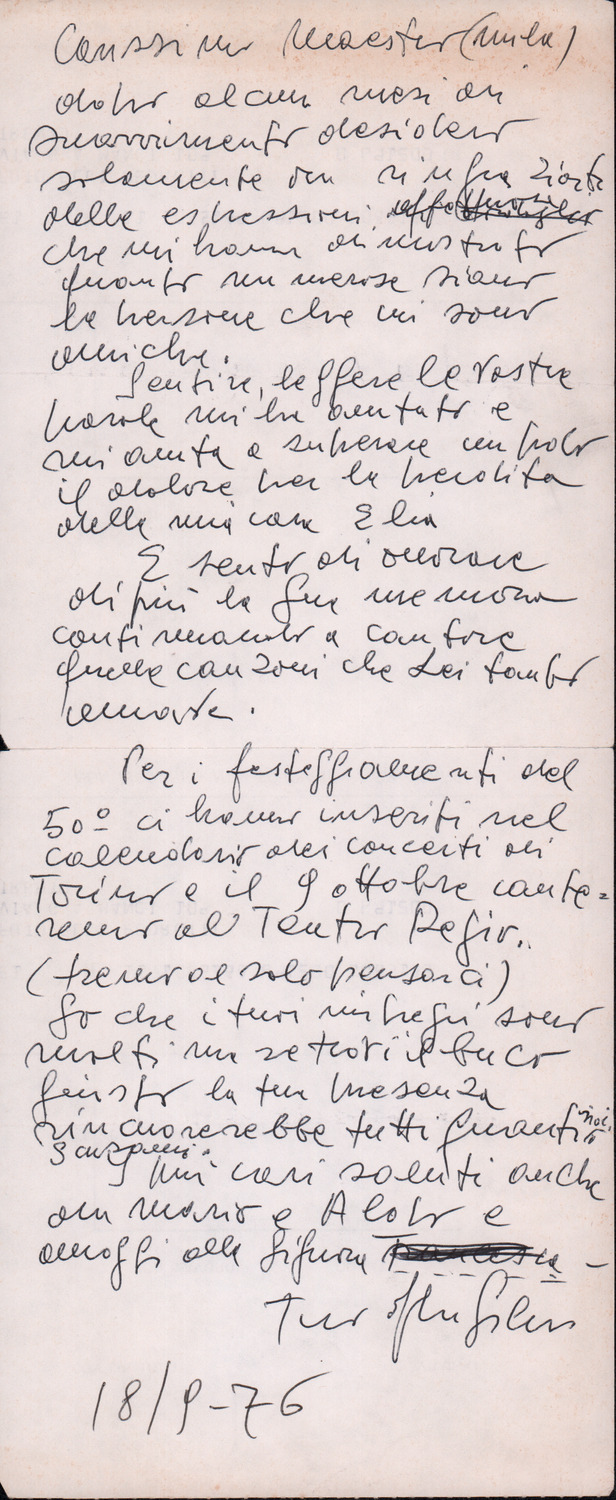 Carissimo Maestro (Mila)
dopo alcuni mesi di
smarrimento desidero
solamente ringraziarti
delle espressioni affettuosissime
che mi hanno dimostrato
quanto numerose siano
le persone che mi sono
amiche.
Sentire, leggere le Vostre
parole mi ha aiutato e
mi aiuta a superare un poco
il dolore per la perdita
della mia cara Elia
E sento di onorare
di più la Sua memoria
continuando a cantare
quelle canzoni che Lei tanto
amava.
Per i festeggiamenti del
50º ci hanno inseriti nel
calendario dei concerti di
Torino e il 9 ottobre cante=
remo al Teatro Regio..
(tremo al solo pensarci)
So che i tuoi impegni sono
molti ma se trovi il buco
giusto la tua presenza
rincuorerebbe tutti quanti noi
Scarponi.
I miei cari saluti anche
da Mario e Aldo e
omaggi alla Signora
tuo
18/9-76